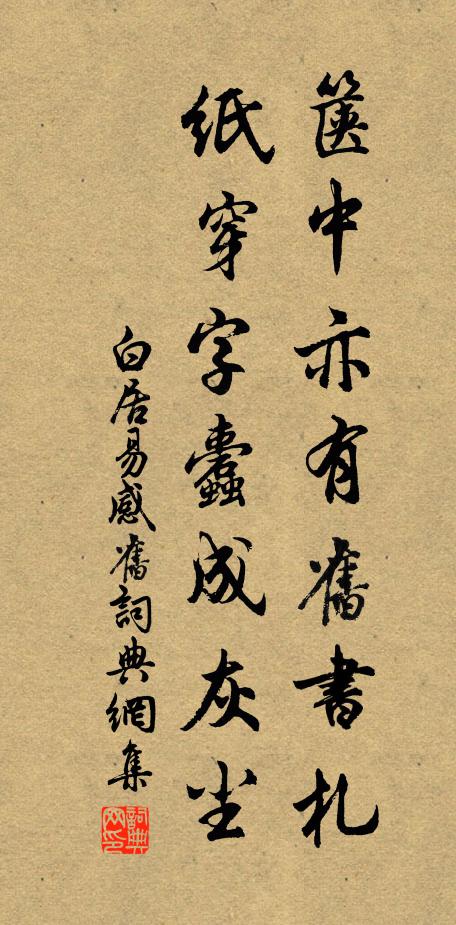 篋中亦有舊書札
紙穿字蠹成灰尘
白居易感舊詞典網集
詞典网印